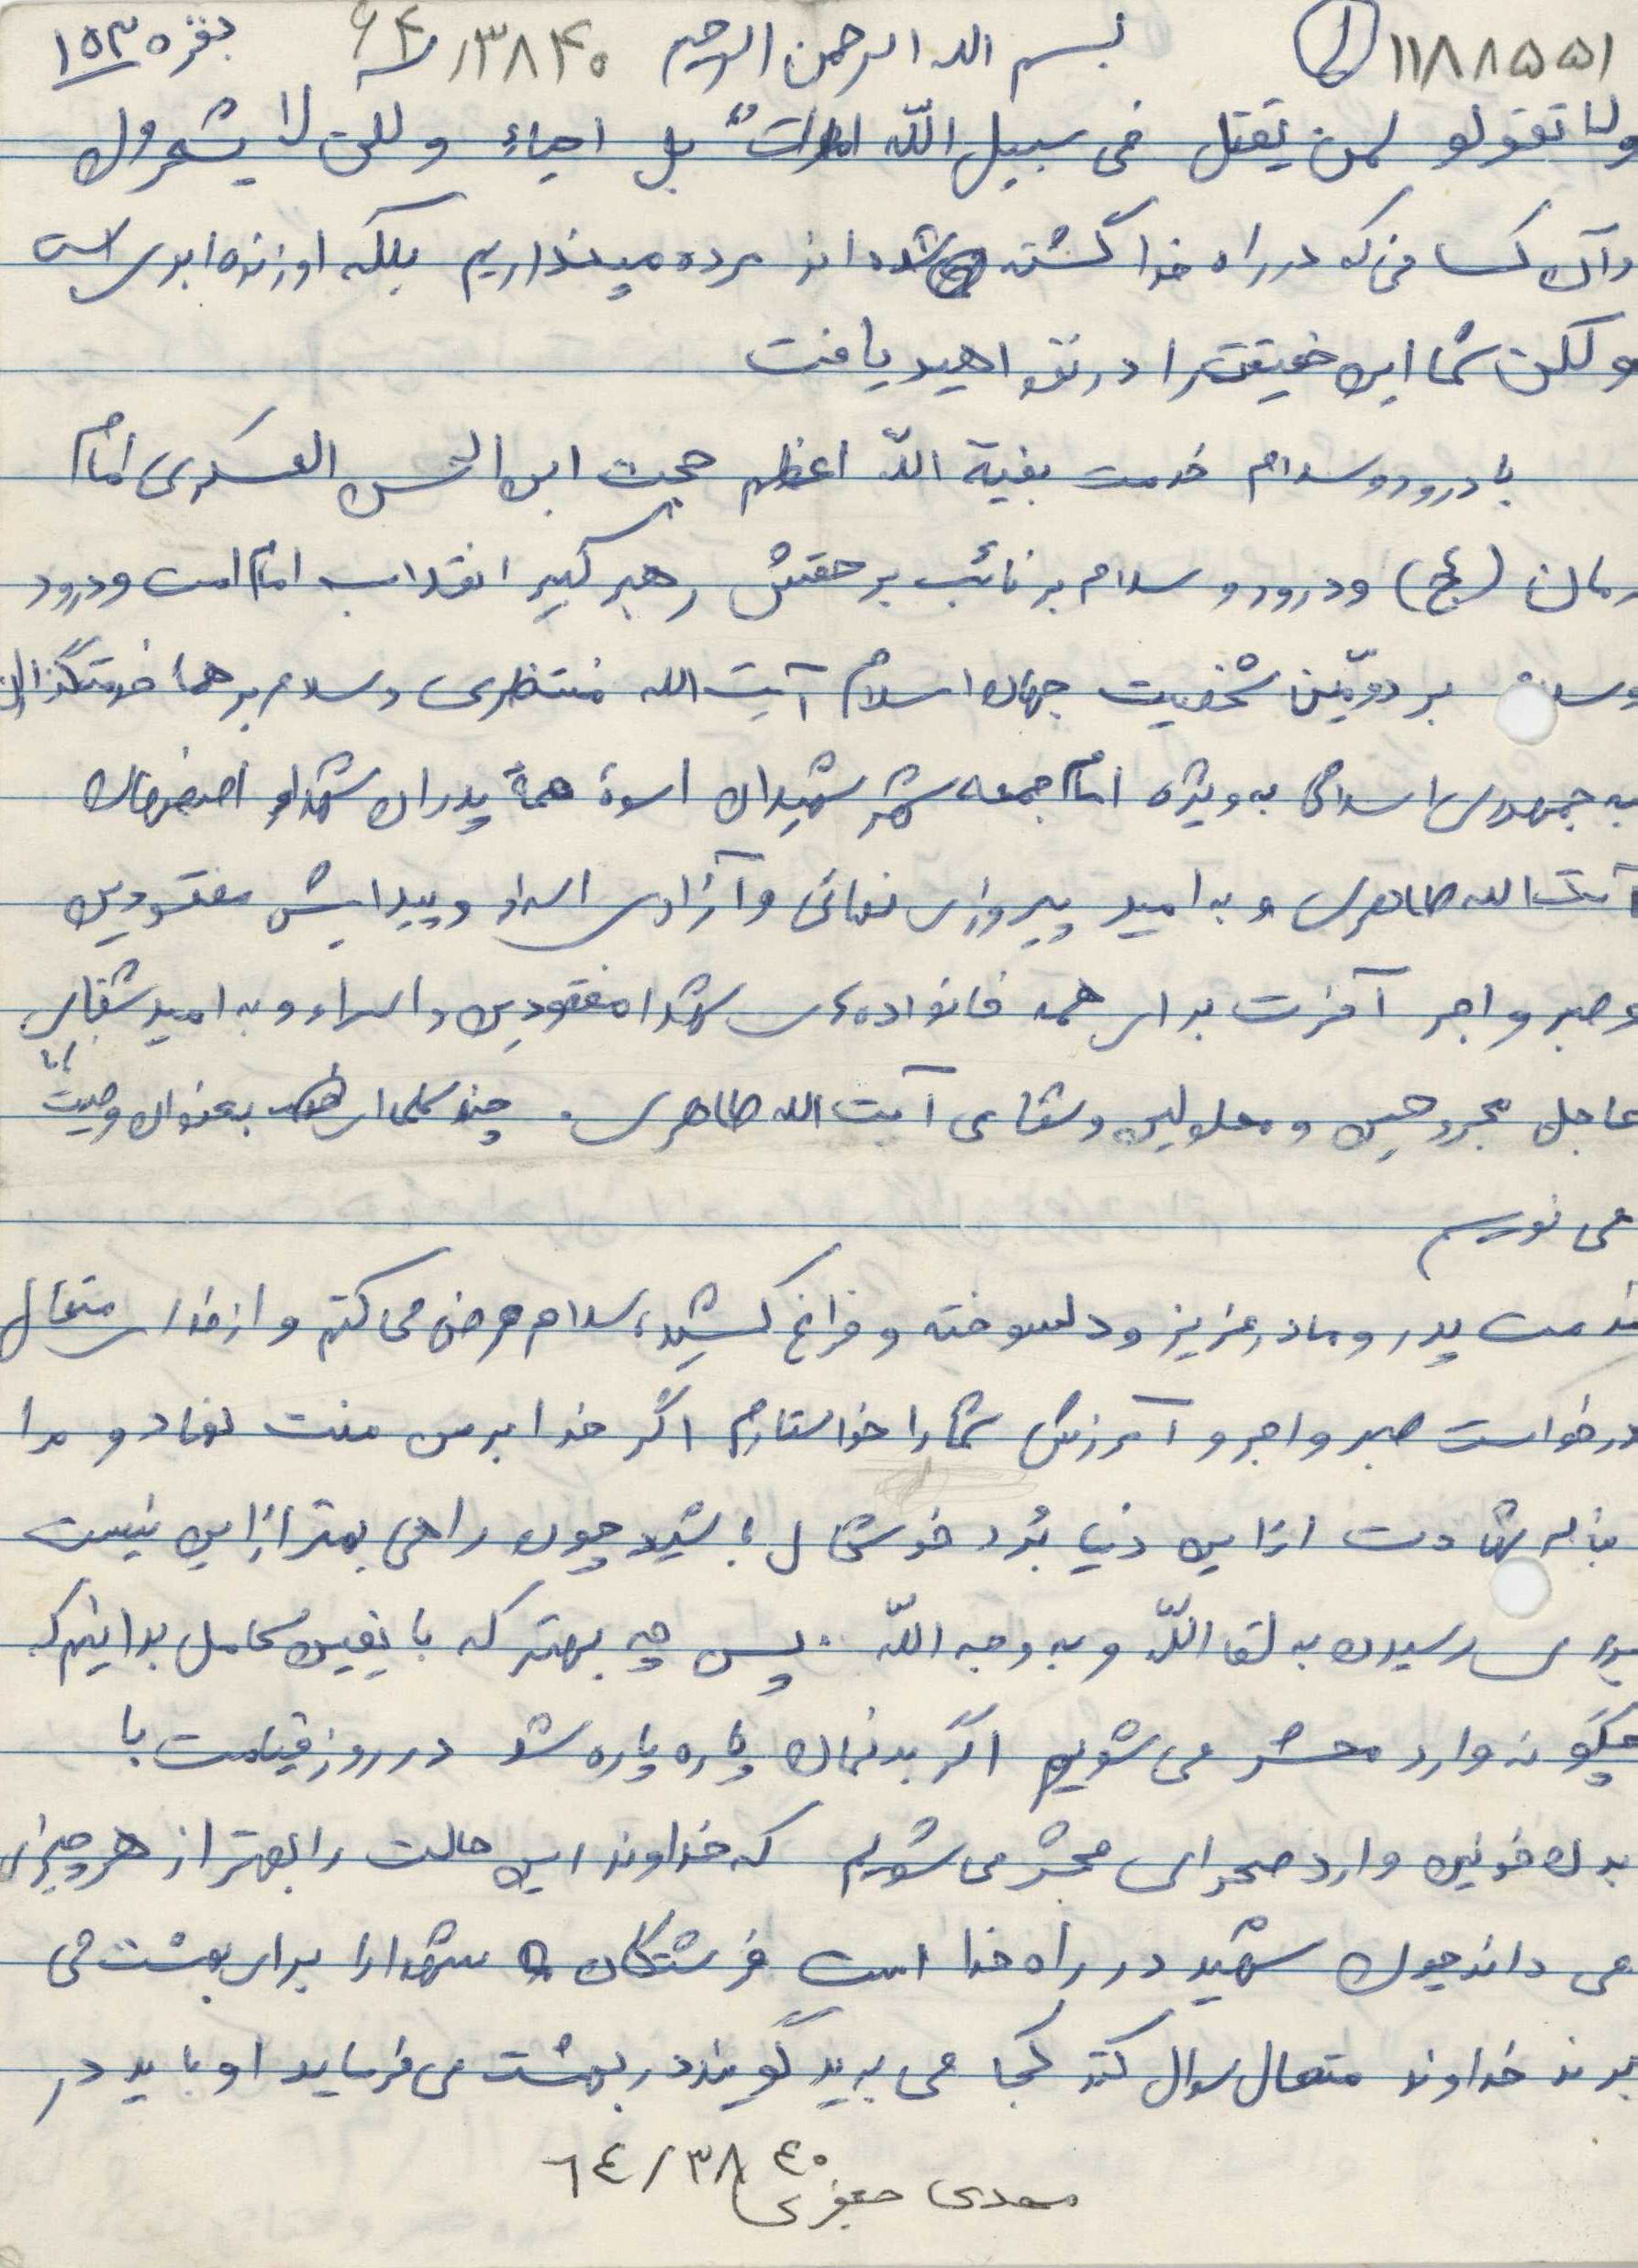 ۱۱۸۸۵۵۱ ۱ بسم الله الرحمن الرحیم ۶۴/۳۸۴۰ بقره ۱۵۳
ولا تقولو لمن یقتل فی سبیل اللّه اموات بل احیاء و لکن لا یشعرون
و آن کسانی که در راه خدا کشته شده‌اند مرده مپنداریم بلکه او زنده ابدی است
و لکن شما این حقیقت را در نخواهید یافت
با درود و سلام خدمت بقیة اللّه اعظم حجت ابن الحسن العسکری امام
زمان (عج) و درود و سلام بر نائب بر حقش رهبر کبیر انقلاب امام امت و درود
و سلام بر دومّین شخصیت جهان اسلام آیت الله منتظری و سلام بر همهٔ خدمتگذاران
به جمهوری اسلامی به ویژه امام جمعه شهر شهیدان اسوهٔ همهٔ پدران شهداء اصفهان
آیت الله طاهری و به امید پیروزی نهائی و آزادی اسراء و پیدایش مفقودین
و صبر و اجر آخرت برای همه خانواده‌های شهدا مفقودین و اسراء و به امید شفای
عاجل مجروحین و معلولین و شفای آیت الله طاهری . چند کلمه‌ای بعنوان وصیت نامه
می نویسم
خدمت پدر و مادر عزیز و دلسوخته و فراغ کشیده سلام عرض می کنم و از خدای متعال
درخواست صبر و اجر و آمرزش شما را خواستارم اگر خدا بر من منت نهاد و مرا
با شهادت از این دنیا بُرد خوشحال باشید چون راهی بهتر از این نیست
برای رسیدن به لقا اللّه و به وجه اللّه . پس چه بهتر که با یقین کامل بدانیم که
چگونه وارد محشر می شویم اگر بدنمان پاره پاره شد در روز قیامت با
بدن خونین وارد صحرای محشر می شویم که خداوند این حالت را بهتر از هر چیزی
می داند چون شهید در راه خدا است فرشتگان شهدا را برای بهشت می
برند خداوند متعال سوال کند کجا می برید گویند در بهشت می فرماید او باید در
مهدی جعفری ۶٤/۳۸٤۰